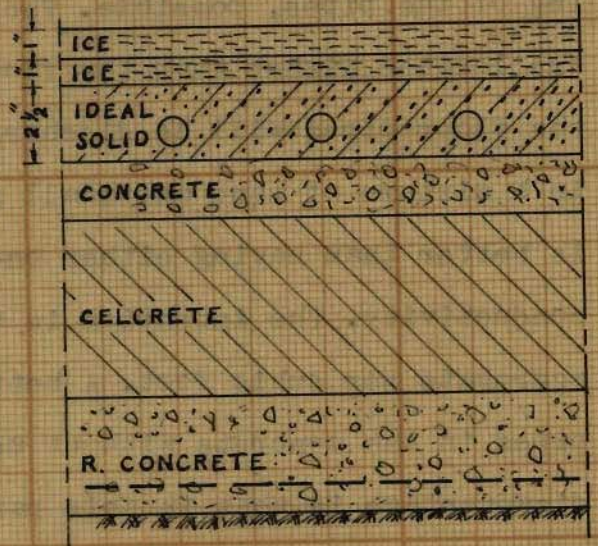 1"
ICE
1"
ICE
2½"
IDEAL
SOLID
CONCRETE
CELCRETE
R. CONCRETE